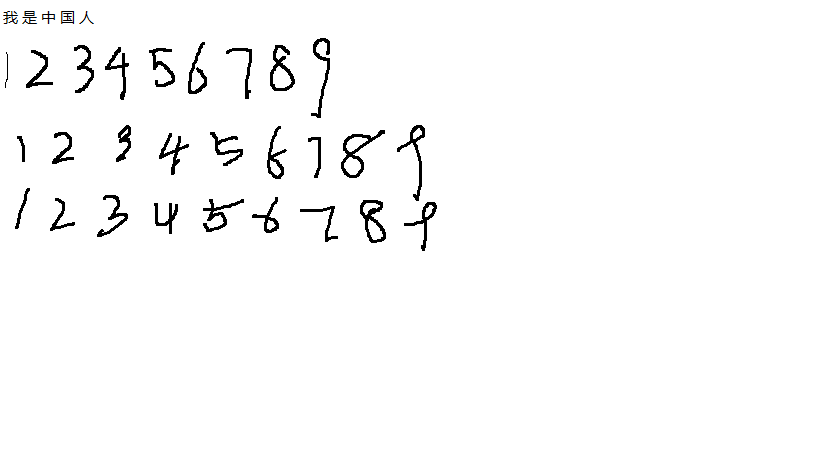 我是中国人
1 2 3 4 5 6 7 8 9
1 2 3 4 5 6 7 8 9
1 2 3 4 5 6 7 8 9